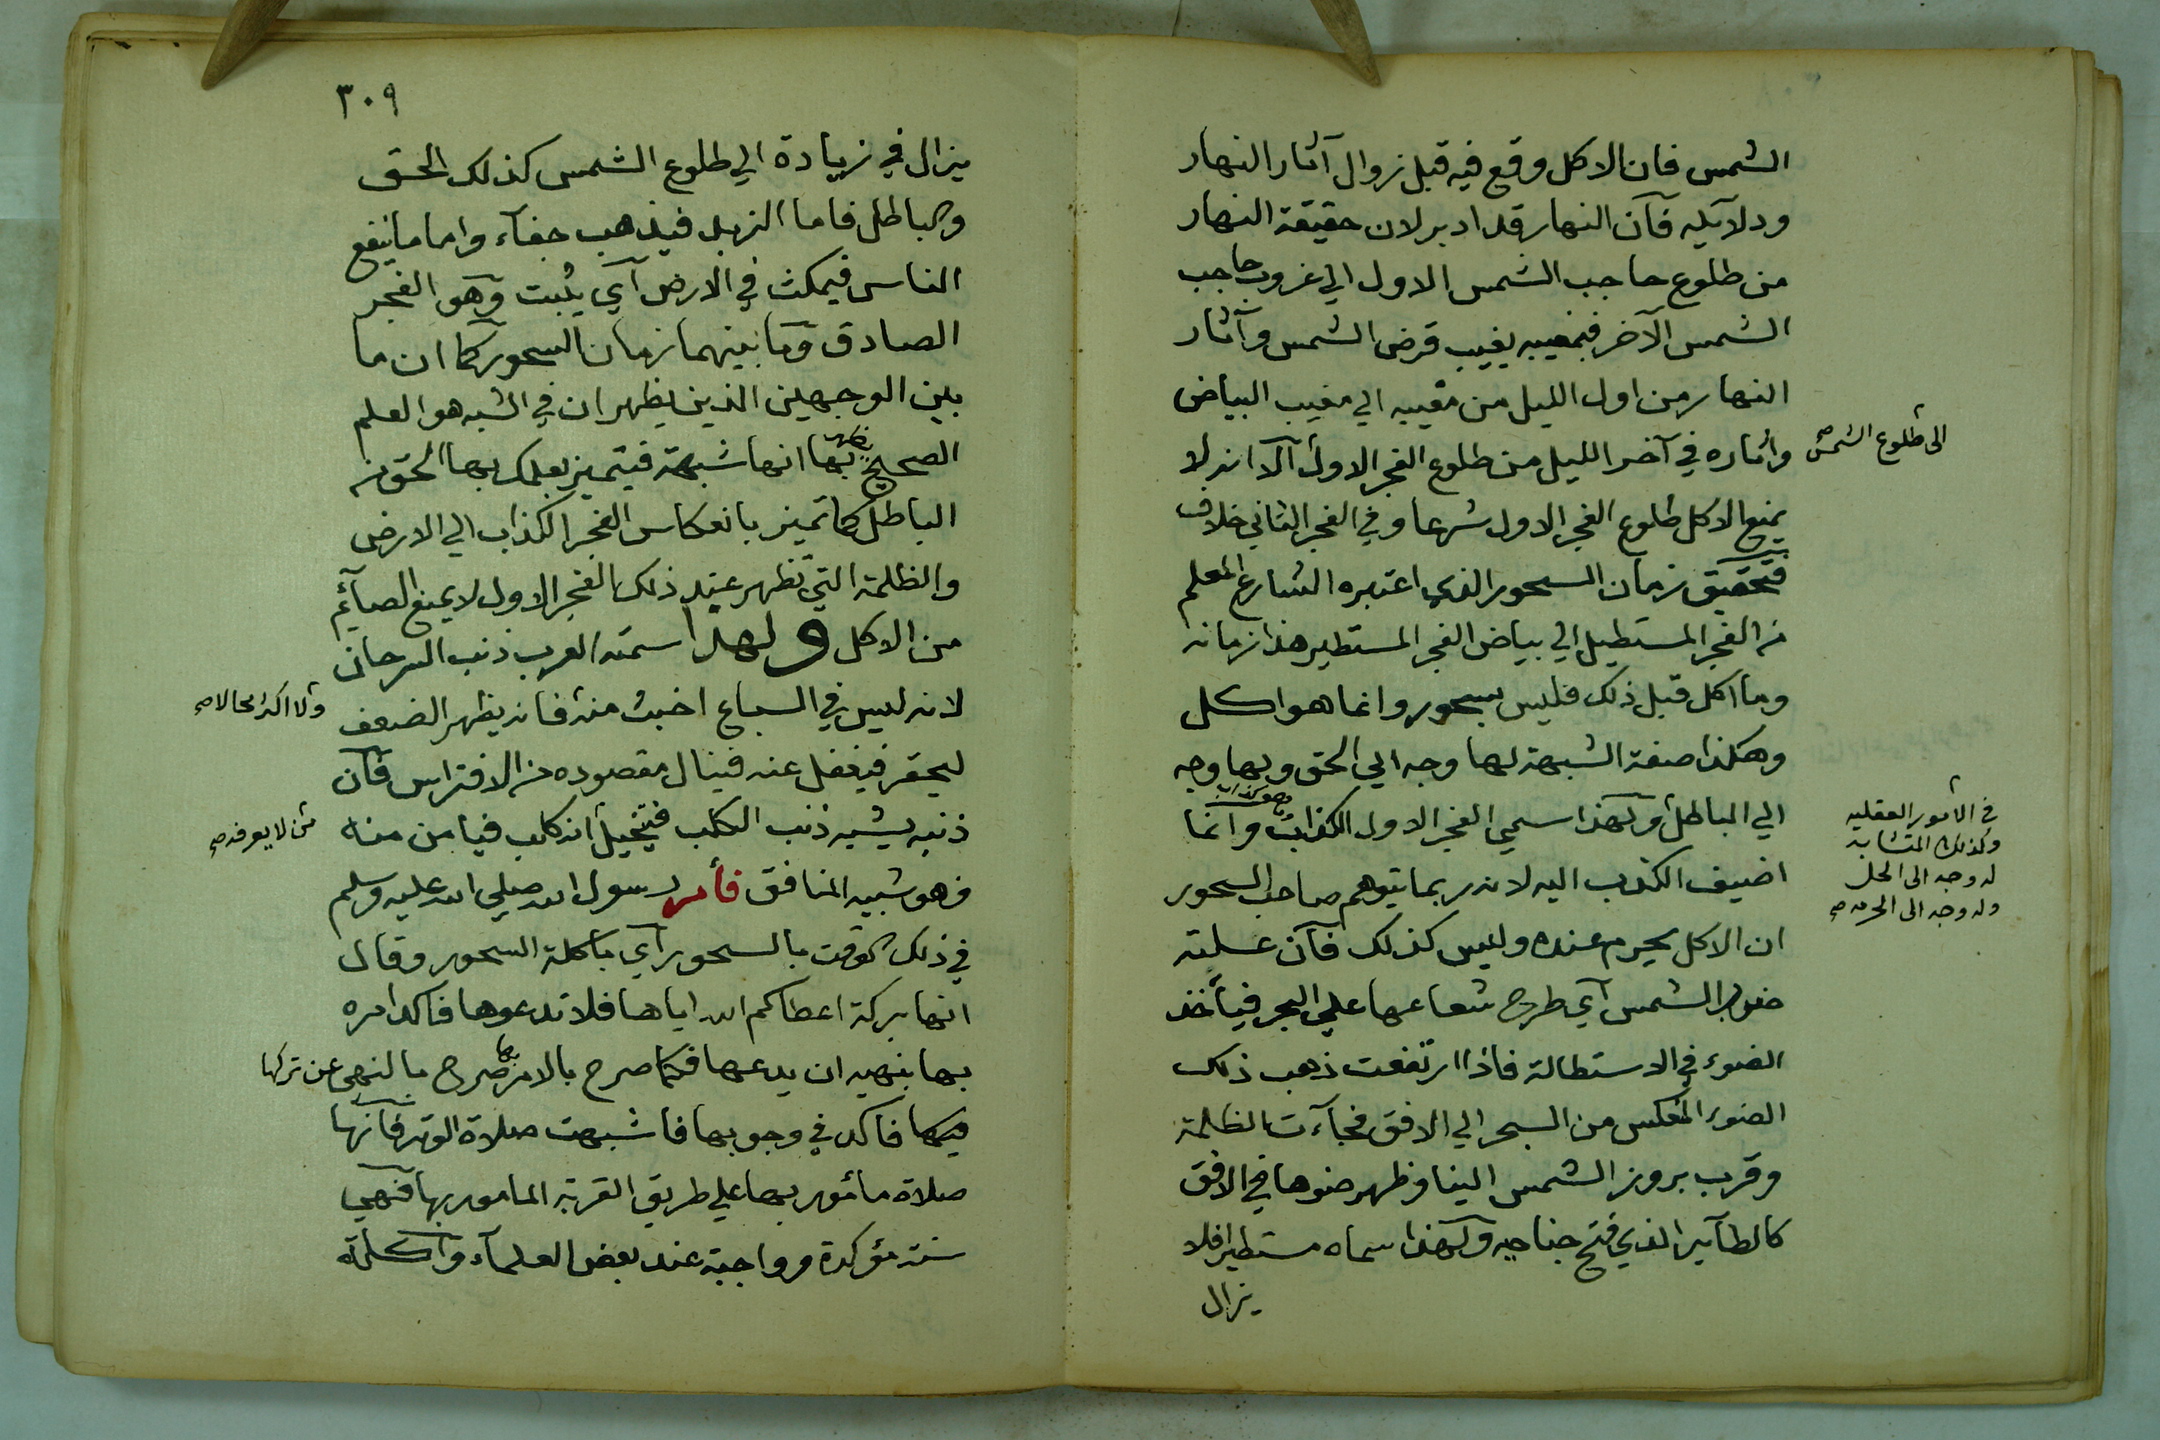 الشمس فان الاكل وقع فيه قبل زوال آثار النهار
ودلآئله فآن النهار قد ادبر لان حقيقة النهار
من طلوع حاجب الشمس الاول الي غروب حاجب
الشمس الآخر فبمغيبه يغيب قرص الشمس وآثار
النهار من اول الليل من مغيبه الي مغيب البياض
وآثاره في آخر الليل من طلوع الفجر الاول آلا انه لا
الى طلوع الشمس صح
يمنع الاكل طلوع الفجر الاول شرعا وفي الفجر الثاني خلاف
فتحقيق زمان السحور الذي اعتبره الشارع المعلم
من الفجر المستطيل الي بياض الفجر المستطير هذا زمانه
وما اكل قبل ذلك فليس بسحور وانما هو اكل
وهكذا صفة الشبهة لها وجه الي الحق ولها وجه
الي الباطل ولهذا سمي الفجر الاول الكذاب وانما
في الأمور العقليه
وكذلك المتشابه
له وجه الى الحل
وله وجه الى الحرمه صح
اضيف الكذب اليه لانه ربما يتوهم صاحب السحور
ان الاكل يحرم عنده وليس كذلك فآن علته
ضوء الشمس آي طرح شعاعها علي البحر فيأخذ
الضوء في الاستطالة فاذا ارتفعت ذهب ذلك
الضوء المنعكس من البحر الي الافق فجآءت الظلمة
وقرب بروز الشمس الينا وظهر ضوها في الافق
كالطآئر الذي فتح جناحيه ولهذا سماه مستطيرا فلا
يزال
٣٠٩
يزال في زيادة الي طلوع الشمس كذلك الحق
والباطل فاما الزبد فيذهب جفآء واما ما ينفع
الناس فيمكث في الارض آي يثبت وهو الفجر
الصادق وما بينهما زمان السحور كما ان ما
بين الوجهين الذين يظهران في الشبه هو العلم
الصحيح بها انها شبهة فيتميز بعلمك بها الحق من
الباطل كما تميز بانعكاس الفجر الكذاب الي الارض
والظلمة التي تظهر عند ذلك الفجر الاول لا يمنع الصآئم
من الاكل ولهذا سمته العرب ذنب السرحان
لانه ليس في السباع اخبث منه فانه يظهر الضعف
ولا اكثر محالا صح
ليحقر فيغفل عنه فينال مقصوده من الافتراس فآن
ذنبه يشبه ذنب الكلب فيتخيل انه كلب فيامن منه
من لا يعرفه صح
فهو شبيه المنافق فأمر رسول الله صلي الله عليه وسلم
في ذلك الوقت بالسحور آي باكلة السحور وقال
انها بركة اعطاكم الله اياها فلا تدعوها فاكد امره
بها بنهيه ان يدعها فكما صرح بالامر بها صرح بالنهي عن تركها
فاكد في وجوبها فاشبهت صلاة الوتر فآنها
صلاة مأمور بها علي طريق القربة المامور بها فهي
سنة مؤكدة وواجبة عند بعض العلمآء وآكلة